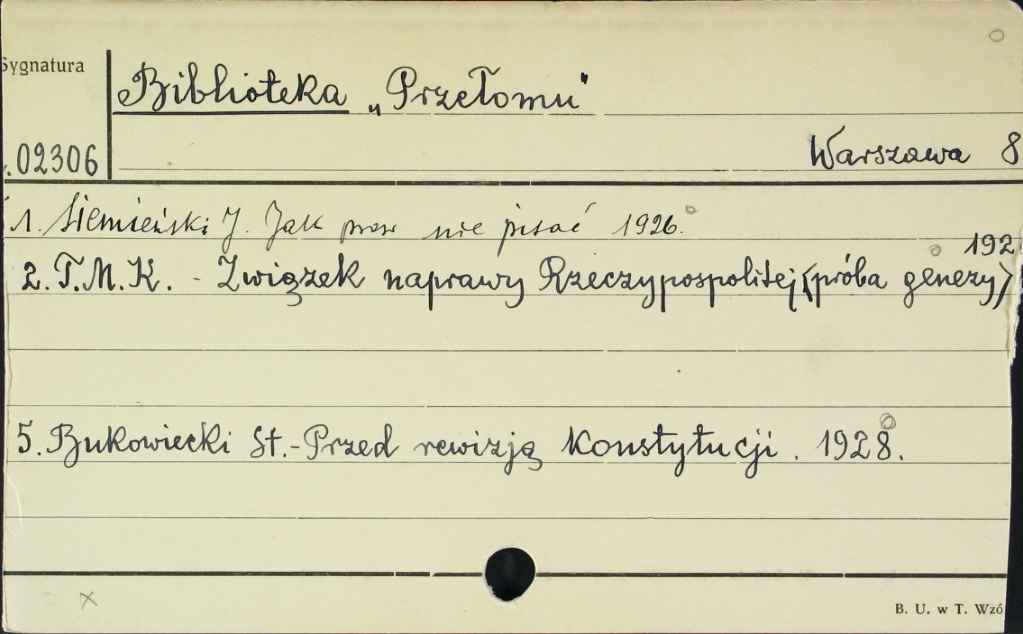 Sygnatura
Biblioteka „Przełomu"
.02306
Warszawa 8
1. Siemieński J. Jak praw nie pisać 1926.
192
2. T.M.K. - Związek naprawy Rzeczypospolitej (próba genezy)
5. Bukowiecki St.-Przed rewizją Konstytucji. 1928.
B. U. w T. Wzó